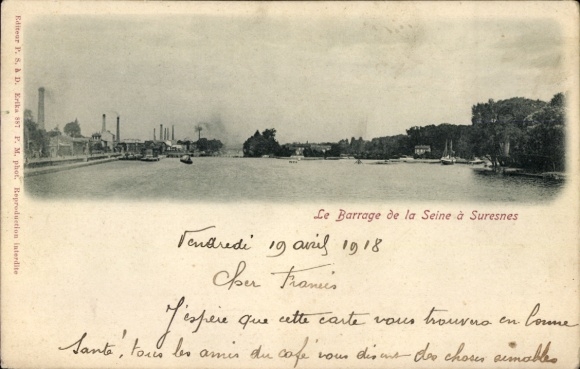 Editeur P. S. à D. Erika 987 P. M. phot. Reproduction interdite
Le Barrage de la Seine à Suresnes
Vendredi 19 avril 1918
Cher Francis
J'espère que cette carte vous trouvera en bonne
santé, tous les amis du café vous disent des choses aimables